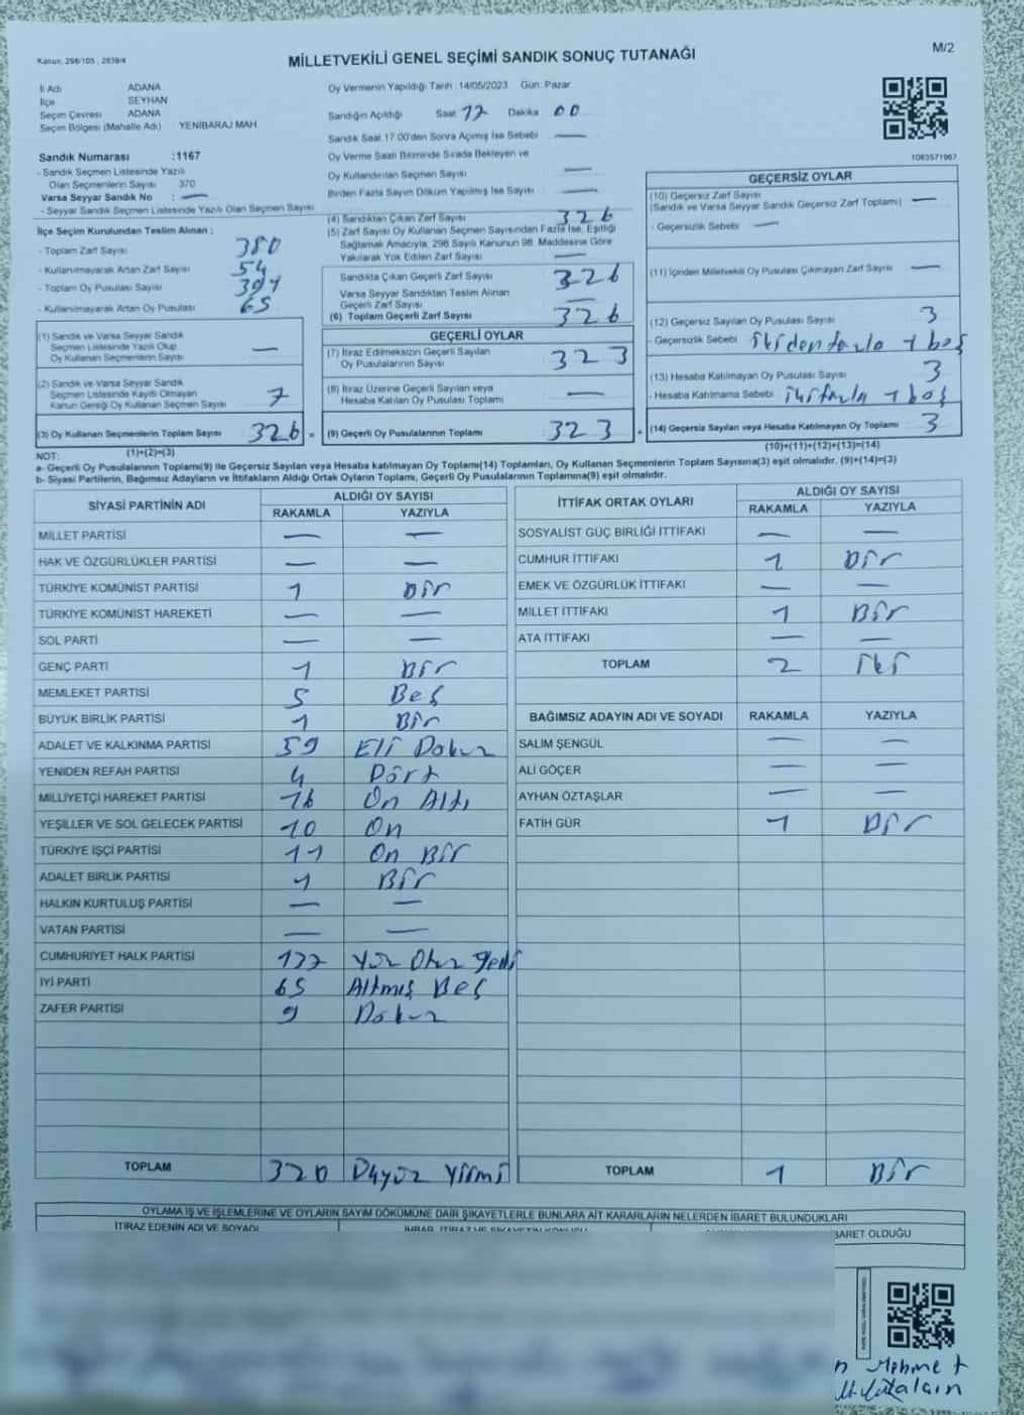 Kanun, 298/105 , 2839/4
MİLLETVEKİLİ GENEL SEÇİMİ SANDIK SONUÇ TUTANAĞI
M/2
İl Adı ADANA
İlçe SEYHAN
Seçim Çevresi ADANA
Seçim Bölgesi (Mahalle Adı) YENİBARAJ MAH
Oy Vermenin Yapıldığı Tarih : 14/05/2023 Gün: Pazar
Sandığın Açıldığı Saat 17 Dakika 00
Sandık Saat 17.00'den Sonra Açılmış İse Sebebi —
Oy Verme Saati Bitiminde Sırada Bekleyen ve
Oy Kullandırılan Seçmen Sayısı —
Birden Fazla Sayım Döküm Yapılmış İse Sayısı —
1083571967
Sandık Numarası :1167
- Sandık Seçmen Listesinde Yazılı
Olan Seçmenlerin Sayısı 370
Varsa Seyyar Sandık No : —
- Seyyar Sandık Seçmen Listesinde Yazılı Olan Seçmen Sayısı
İlçe Seçim Kurulundan Teslim Alınan :
- Toplam Zarf Sayısı 380
- Kullanılmayarak Artan Zarf Sayısı 54
- Toplam Oy Pusulası Sayısı 391
- Kullanılmayarak Artan Oy Pusulası 65
(1) Sandık ve Varsa Seyyar Sandık
Seçmen Listesinde Yazılı Olup
Oy Kullanan Seçmenlerin Sayısı —
(2) Sandık ve Varsa Seyyar Sandık
Seçmen Listesinde Kayıtlı Olmayan
Kanun Gereği Oy Kullanan Seçmen Sayısı 7
(3) Oy Kullanan Seçmenlerin Toplam Sayısı 326 =
(1)+(2)=(3)
(4) Sandıktan Çıkan Zarf Sayısı 326
(5) Zarf Sayısı Oy Kullanan Seçmen Sayısından Fazla İse, Eşitliği
Sağlamak Amacıyla, 298 Sayılı Kanunun 98. Maddesine Göre
Yakılarak Yok Edilen Zarf Sayısı —
Sandıkta Çıkan Geçerli Zarf Sayısı 326
Varsa Seyyar Sandıktan Teslim Alınan
Geçerli Zarf Sayısı —
(6) Toplam Geçerli Zarf Sayısı 326
GEÇERLİ OYLAR
(7) İtiraz Edilmeksizin Geçerli Sayılan
Oy Pusulalarının Sayısı 323
(8) İtiraz Üzerine Geçerli Sayılan veya
Hesaba Katılan Oy Pusulası Toplamı —
(9) Geçerli Oy Pusulalarının Toplamı 323 +
GEÇERSİZ OYLAR
(10) Geçersiz Zarf Sayısı
(Sandık ve Varsa Seyyar Sandık Geçersiz Zarf Toplamı) —
- Geçersizlik Sebebi —
(11) İçinden Milletvekili Oy Pusulası Çıkmayan Zarf Sayısı —
(12) Geçersiz Sayılan Oy Pusulası Sayısı 3
- Geçersizlik Sebebi ikiden fazla 1 boş
(13) Hesaba Katılmayan Oy Pusulası Sayısı 3
- Hesaba Katılmama Sebebi 1 boş
(14) Geçersiz Sayılan veya Hesaba Katılmayan Oy Toplamı 3
(10)+(11)+(12)+(13)=(14)
NOT:
a- Geçerli Oy Pusulalarının Toplamı(9) ile Geçersiz Sayılan veya Hesaba katılmayan Oy Toplamı(14) Toplamları, Oy Kullanan Seçmenlerin Toplam Sayısına(3) eşit olmalıdır. (9)+(14)=(3)
b- Siyasi Partilerin, Bağımsız Adayların ve İttifakların Aldığı Ortak Oyların Toplamı, Geçerli Oy Pusulalarının Toplamına(9) eşit olmalıdır.
SİYASİ PARTİNİN ADI ALDIĞI OY SAYISI
RAKAMLA YAZIYLA
MİLLET PARTİSİ — —
HAK VE ÖZGÜRLÜKLER PARTİSİ — —
TÜRKİYE KOMÜNİST PARTİSİ 1 Bir
TÜRKİYE KOMÜNİST HAREKETİ — —
SOL PARTİ — —
GENÇ PARTİ 1 Bir
MEMLEKET PARTİSİ 5 Beş
BÜYÜK BİRLİK PARTİSİ 1 Bir
ADALET VE KALKINMA PARTİSİ 59 Eli Dokuz
YENİDEN REFAH PARTİSİ 4 Dört
MİLLİYETÇİ HAREKET PARTİSİ 16 On Altı
YEŞİLLER VE SOL GELECEK PARTİSİ 10 On
TÜRKİYE İŞÇİ PARTİSİ 11 On Bir
ADALET BİRLİK PARTİSİ 1 Bir
HALKIN KURTULUŞ PARTİSİ — —
VATAN PARTİSİ — —
CUMHURİYET HALK PARTİSİ 137 Yüz Otuz Yedi
İYİ PARTİ 65 Altmış Beş
ZAFER PARTİSİ 9 Dokuz
TOPLAM 320 Üçyüz Yirmi
İTTİFAK ORTAK OYLARI ALDIĞI OY SAYISI
RAKAMLA YAZIYLA
SOSYALİST GÜÇ BİRLİĞİ İTTİFAKI — —
CUMHUR İTTİFAKI 1 Bir
EMEK VE ÖZGÜRLÜK İTTİFAKI — —
MİLLET İTTİFAKI 1 Bir
ATA İTTİFAKI — —
TOPLAM 2 İki
BAĞIMSIZ ADAYIN ADI VE SOYADI RAKAMLA YAZIYLA
SALİM ŞENGÜL — —
ALİ GÖÇER — —
AYHAN ÖZTAŞLAR — —
FATİH GÜR 1 Bir
TOPLAM 1 Bir
OYLAMA İŞ VE İŞLEMLERİNE VE OYLARIN SAYIM DÖKÜMÜNE DAİR ŞİKAYETLERLE BUNLARA AİT KARARLARIN NELERDEN İBARET BULUNDUKLARI
İTİRAZ EDENİN ADI VE SOYADI
İBARET OLDUĞU
Mehmet